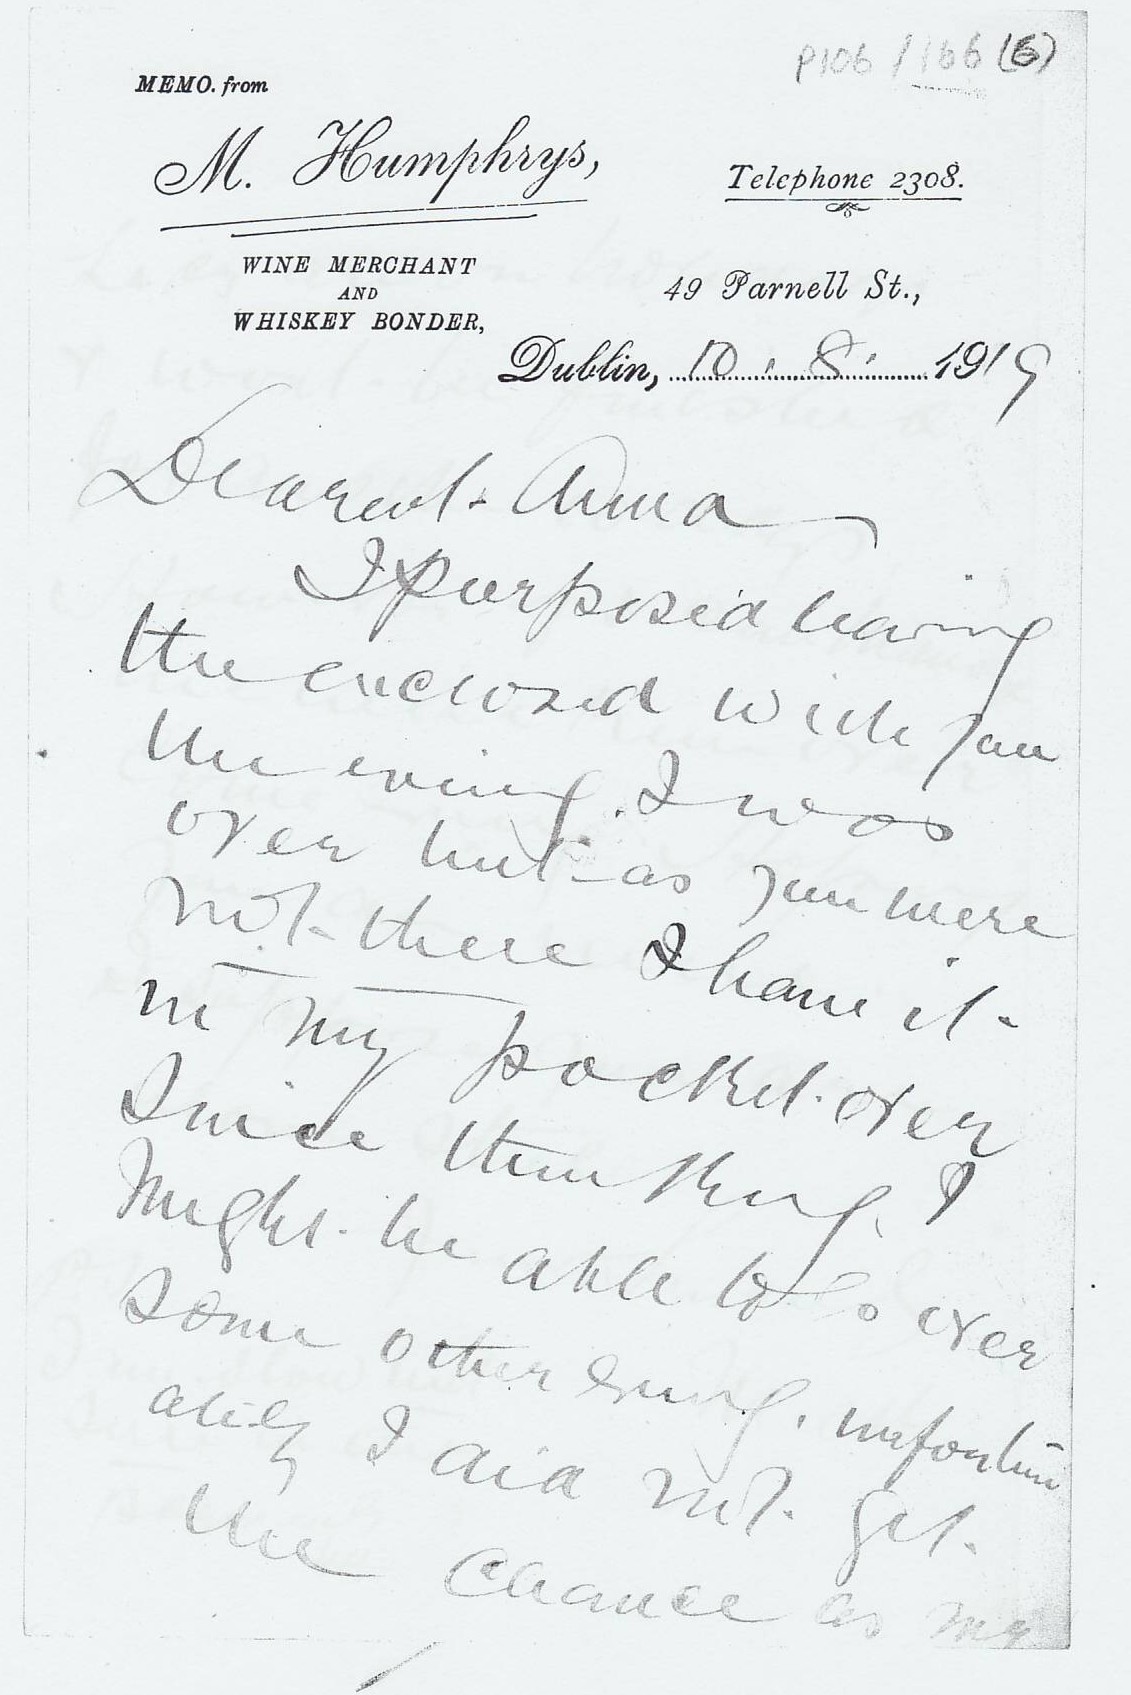 P106/166(6)
MEMO. from
M. Humphrys,
Telephone 2308.
WINE MERCHANT
AND
WHISKEY BONDER,
49 Parnell St.,
Dublin, 10.8. 1919
Dearest Anna
I purposed leaving
the enclosed with you
the evening I was
over but as you were
not there I have it
in my pocket over
since thinking I
might be able to go over
some other evening, unfortun
ately I did not get
the chance as my